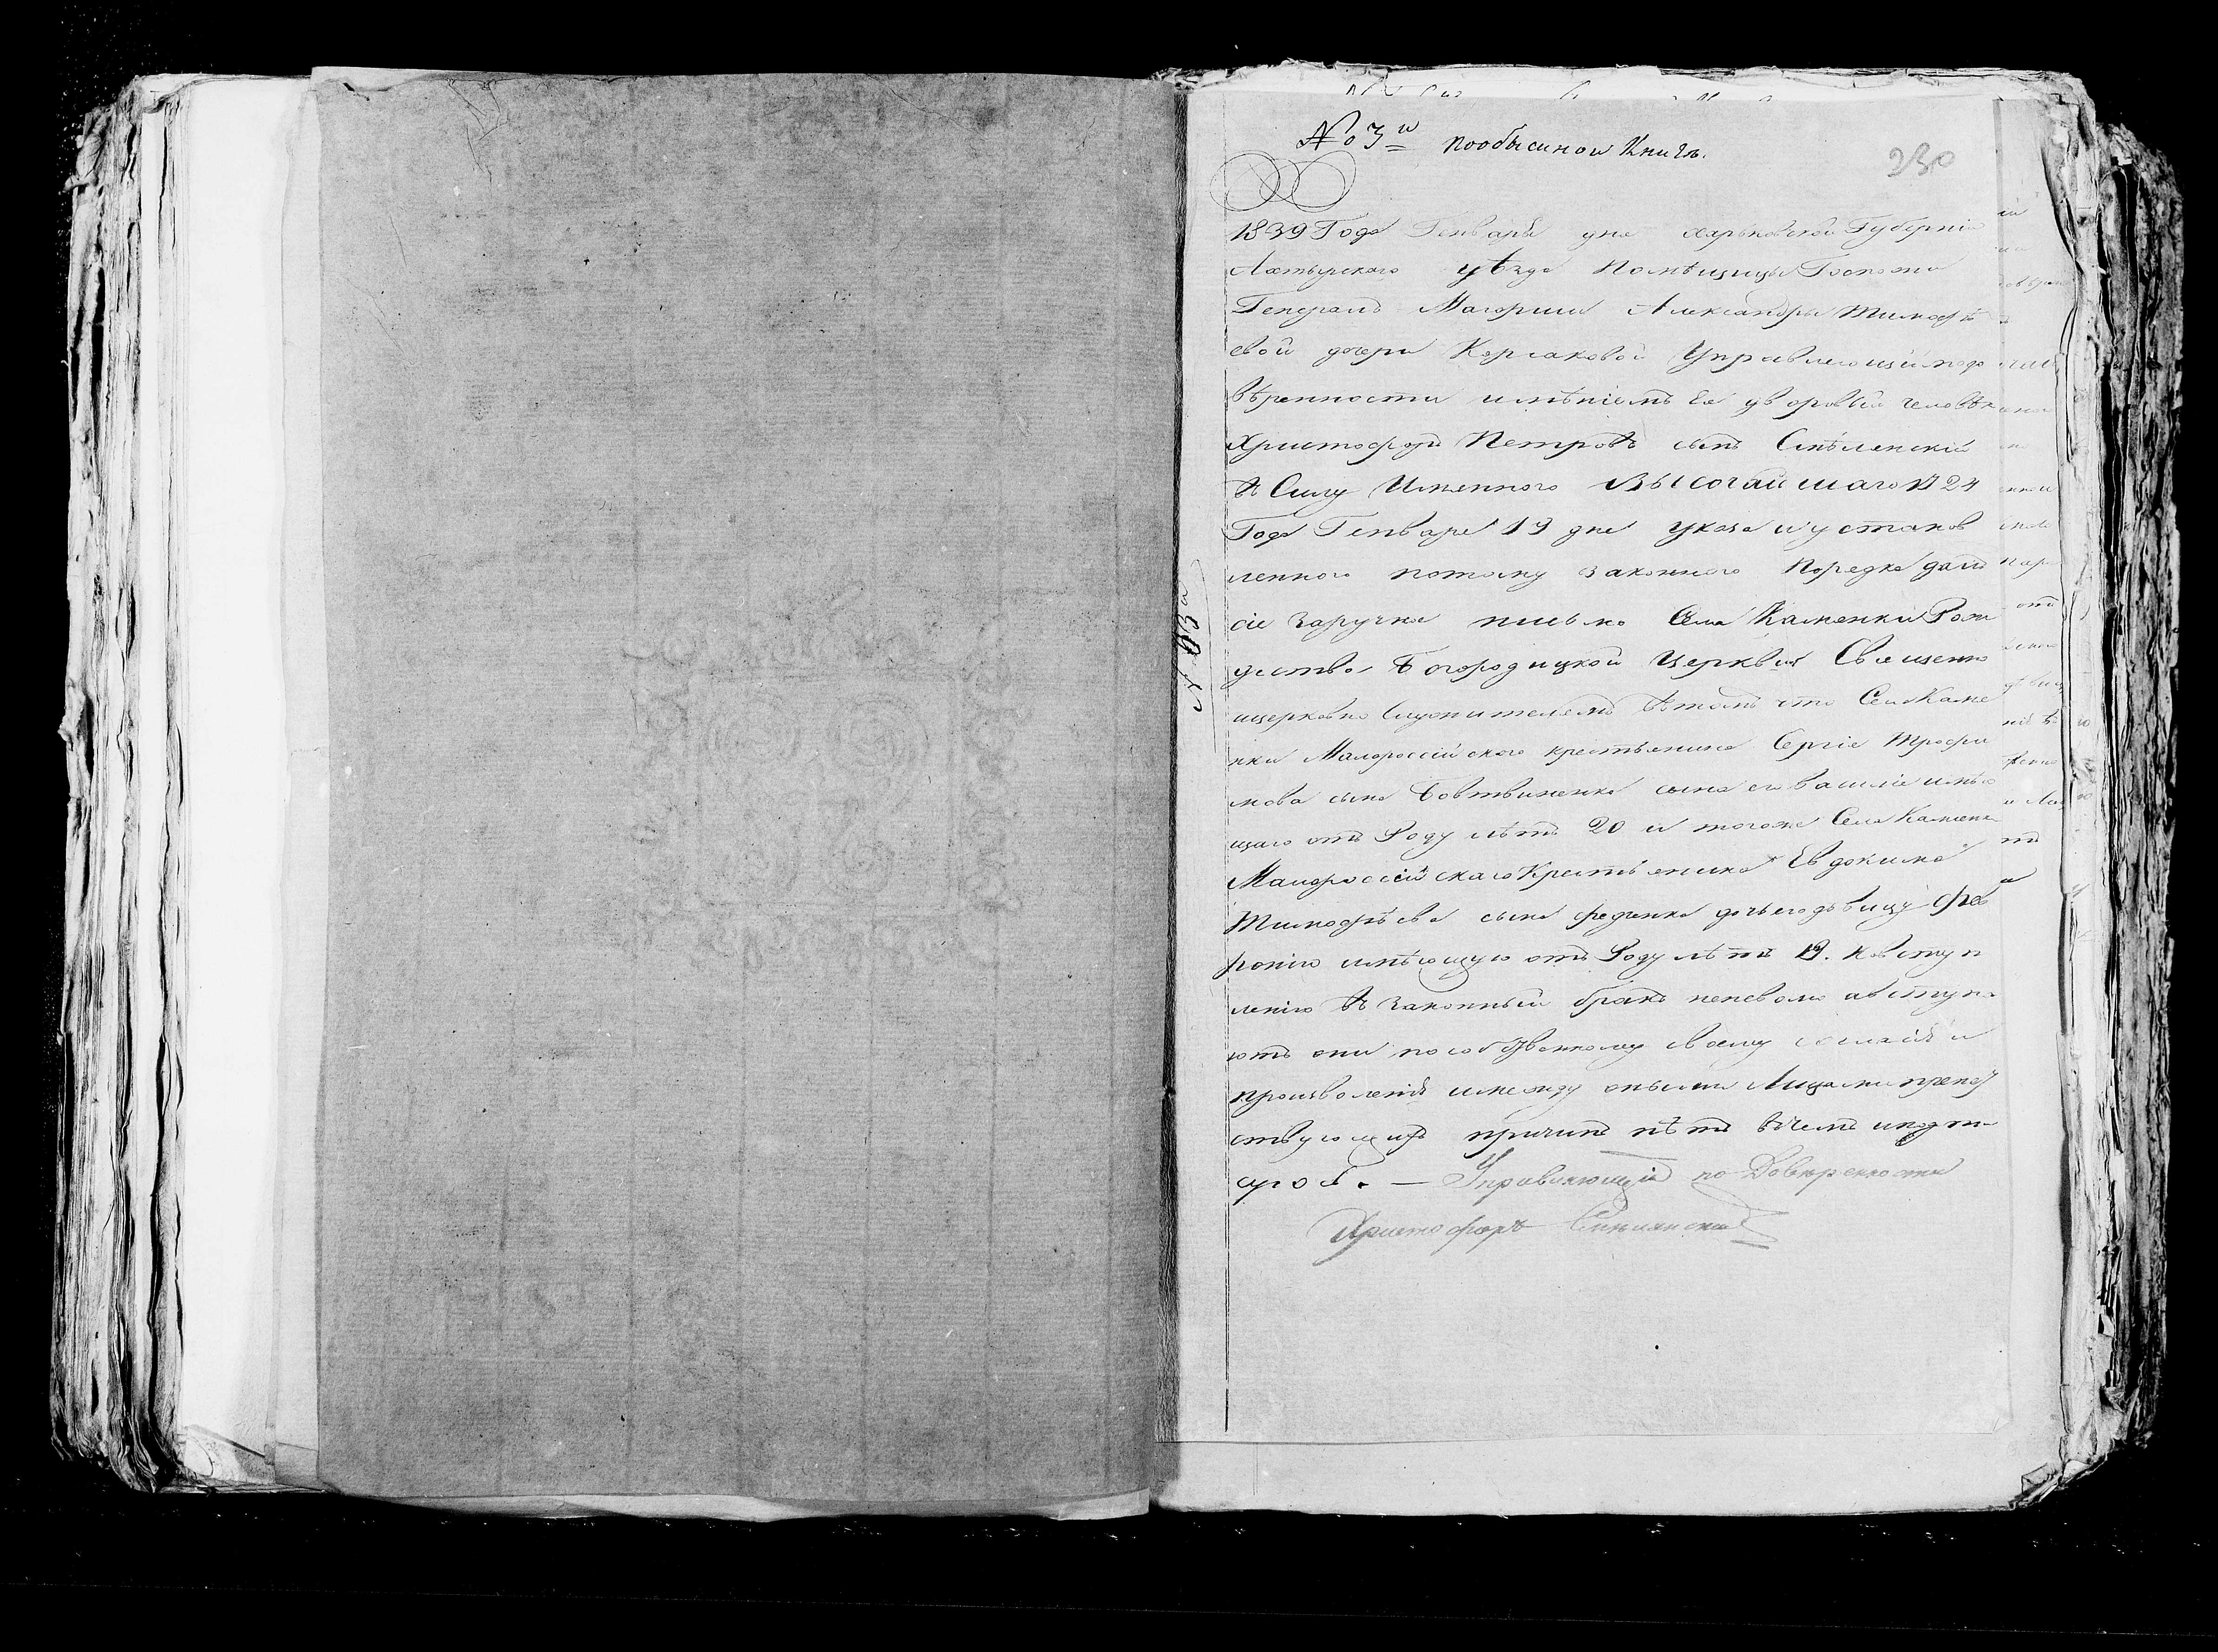 № 3й пообысиной Книгѣ.
230
1839 Года Генваря дня харьковской Губерніи
Ахтырскаго уѣзда Помѣщицы Госпожи
Генералъ Маіорши Александры Тимофѣ
евой дочери Корсаковой Управляющій подо
вѣренности имѣніемъ Ея дворовый человѣк
Христофоръ Петровъ сынъ Смѣленскій
въ Силу Имяннаго Высочайшаго 1724
Года Генваря 19 дня указа и установ
леннаго потому законнаго Порядка далъ
сіе заручное письмо Села Каменки Рож
дество Богородицкой Церкви Священно
ицерковно служителемъ вътомъ что Села Каме
нки Малороссійскаго крестьянина Сергія Трофи
мова сына Бовтвиненка сына его василія имѣю
щаго отъ Роду лѣтъ 20 и тогоже Села Каменки
Малороссійскаго Крестьянина Евдокима
Тимофѣева сына федченка дочь его дѣвицу Фев
ронію имѣющую отъ Роду лѣтъ 19. Квступ
ленію въ законный бракъ неневолю авступа
ютъ они пособственному своему согласію и
произволенію имежду оными Лицами препят
ствующихъ причинъ нѣтъ вчемъ иподпи
суюсь. — Управляющій по Довѣренности
Христофоръ Смѣлянскій
№ 3й